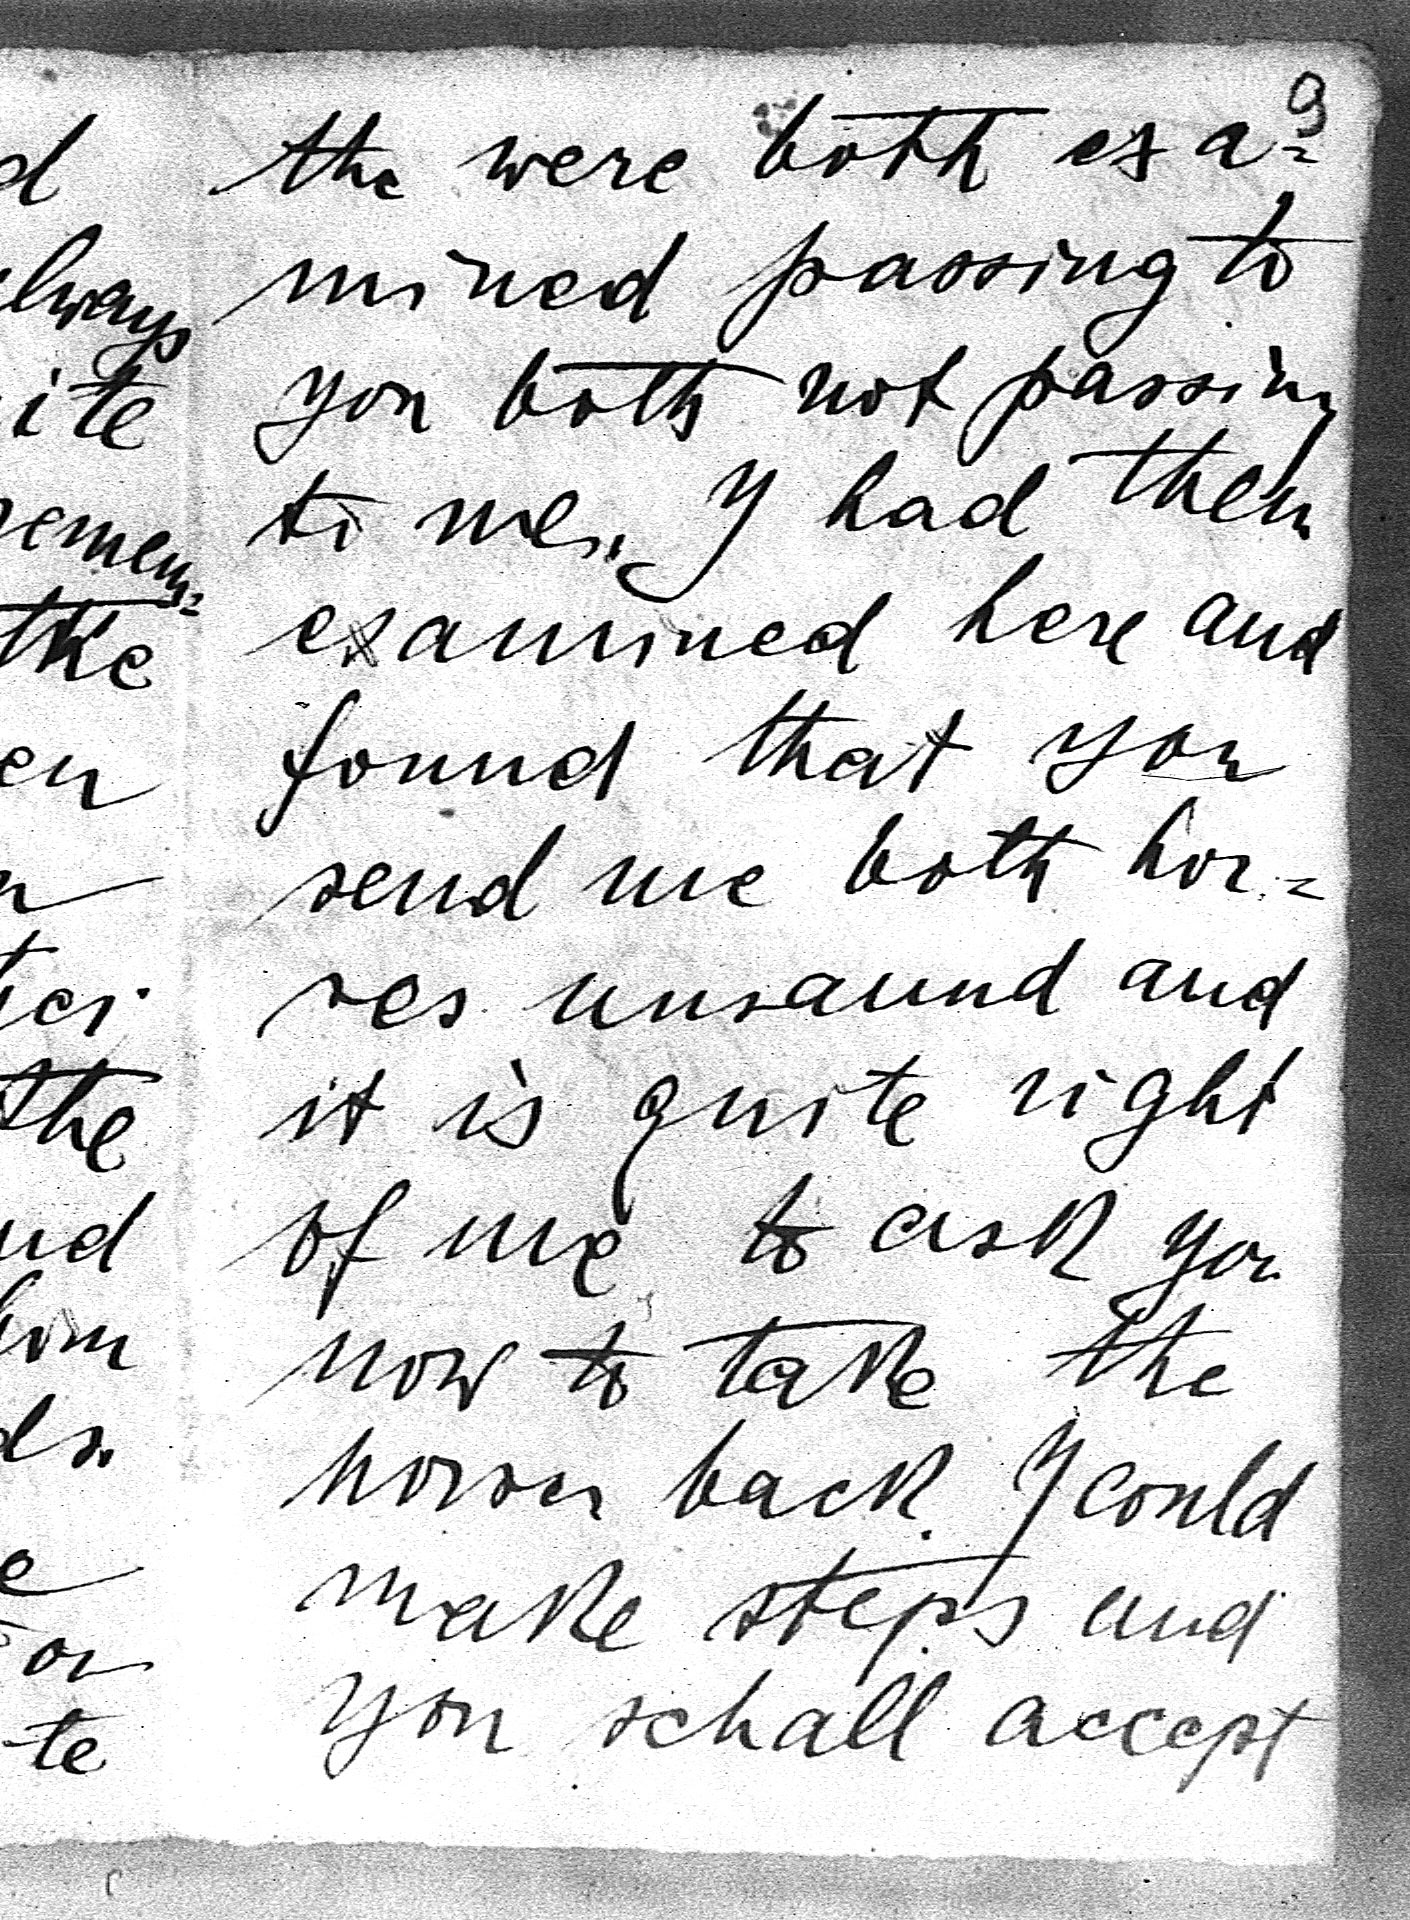 9
the were both exa=
mined passing to
you both not passing
to me. I had them
examined here and
found that you
send me both hor=
ses unsaund and
it is quite right
of me to ask you
now to take the
horses back. I could
make steps and
you schall accept
d
always
ite
remem=
the
en
n
the
nd
him
ds.
e
on
te